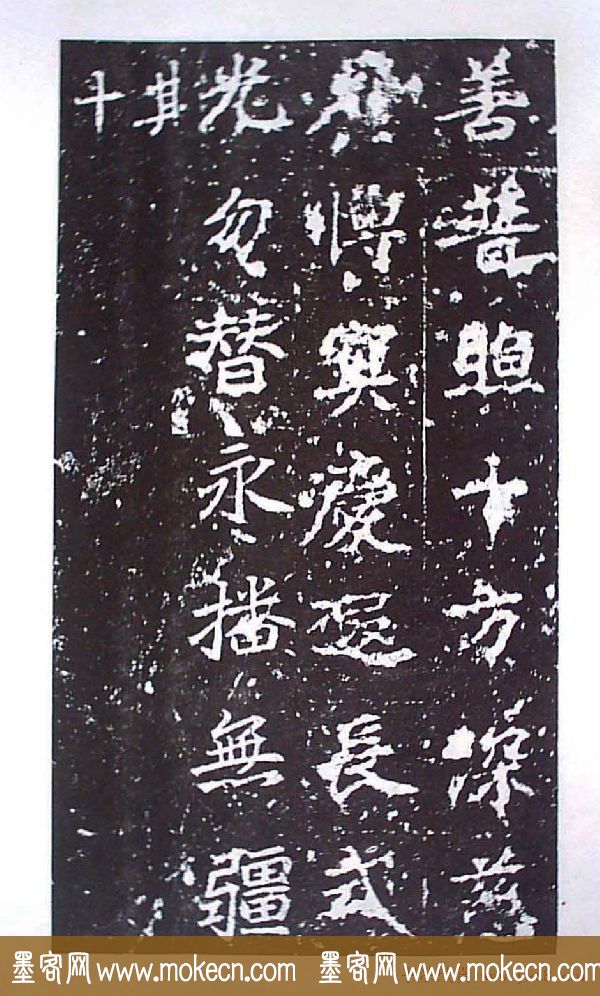 善普照十方深
慶遐長式
光勿替永播無疆
其
十
墨客网 www.mokecn.com 墨客网 www.mokecn.com